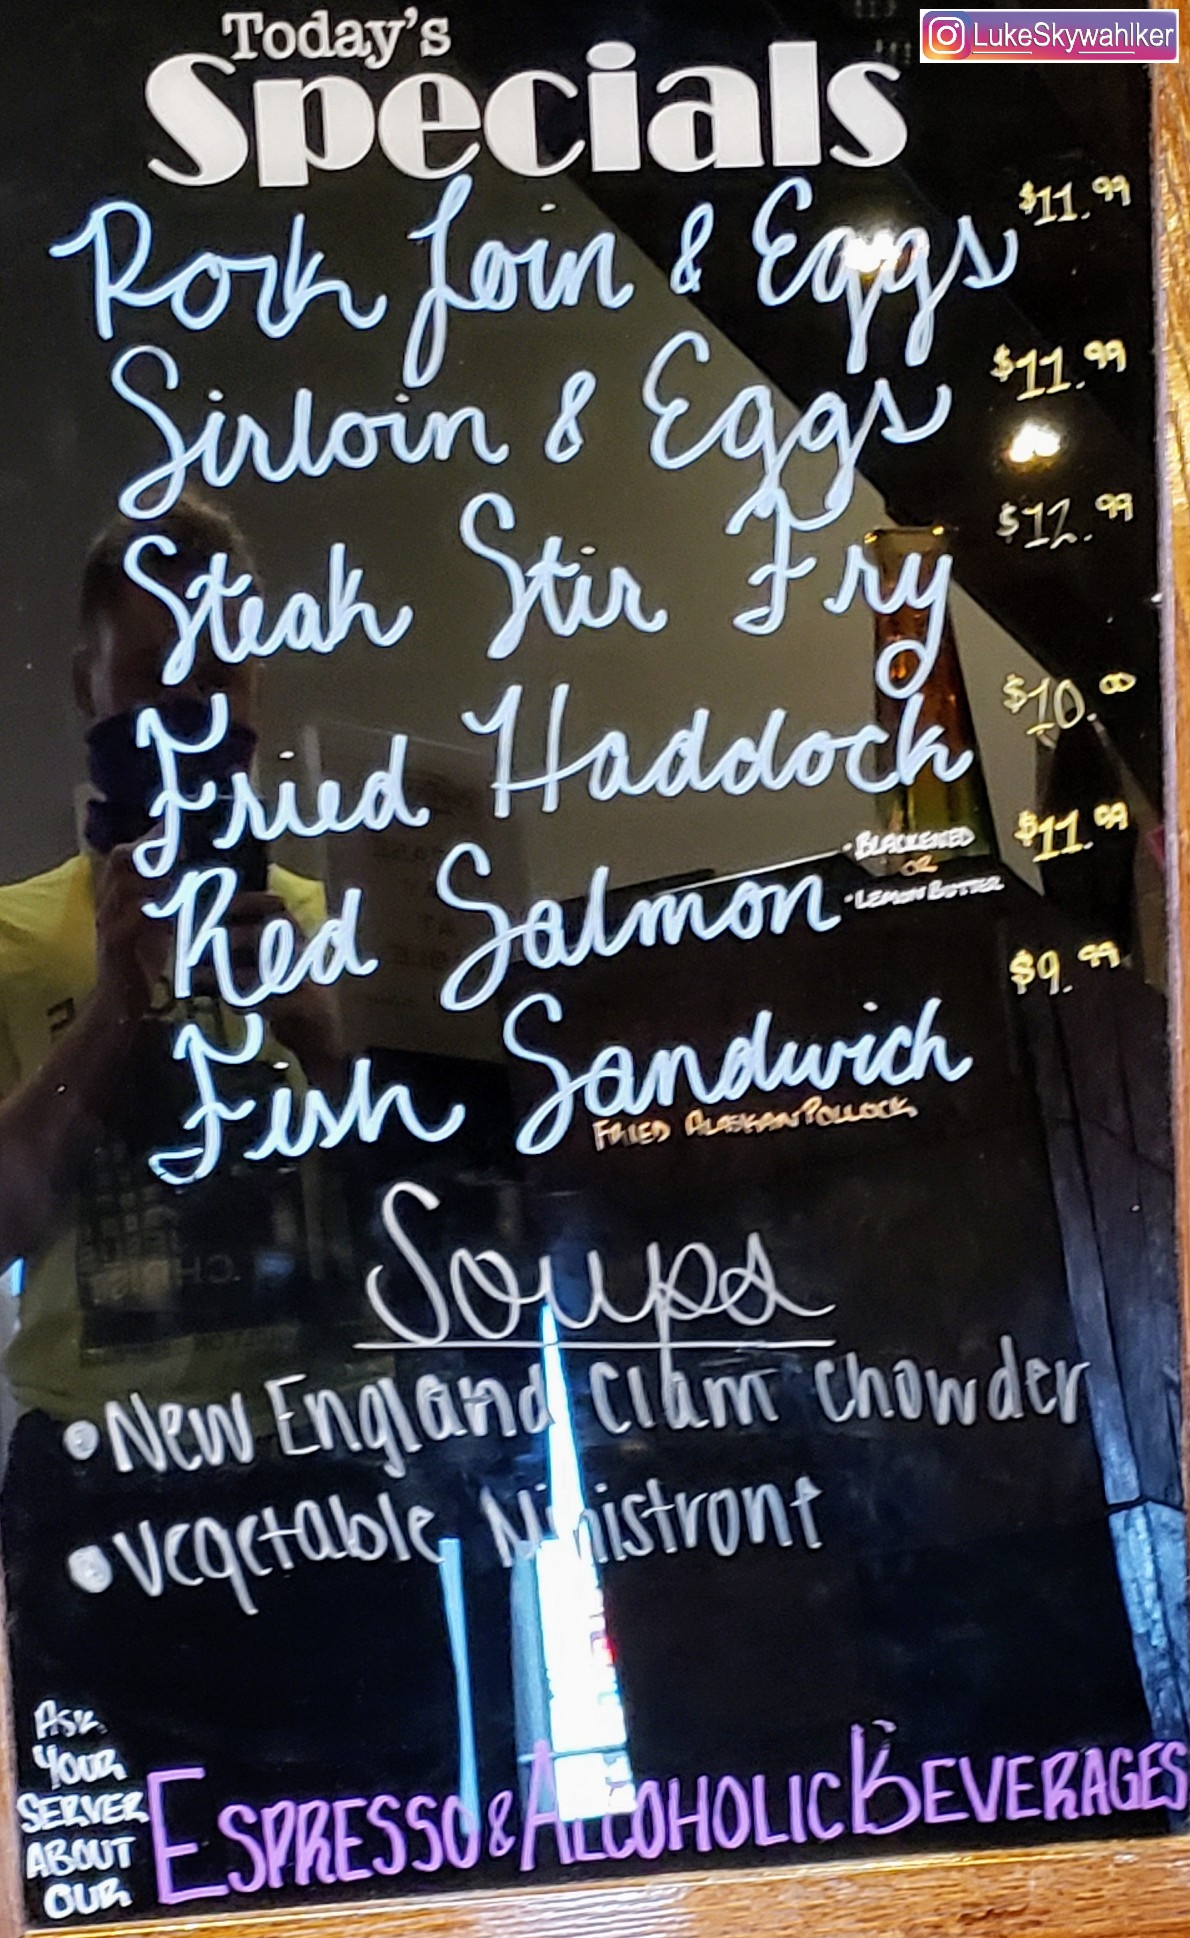 LukeSkywahlker
Today's
Specials
Pork Loin & Eggs $11.99
Sirloin & Eggs $11.99
Steak Stir Fry $12.99
Fried Haddock $10.00
Red Salmon • BLACKENED OR • LEMON BUTTER $11.99
Fish Sandwich $9.99
FRIED ALASKAN POLLOCK
Soups
• New England Clam Chowder
• Vegetable Ministrone
ASK
YOUR
SERVER
ABOUT
OUR
ESPRESSO & ALCOHOLIC BEVERAGES